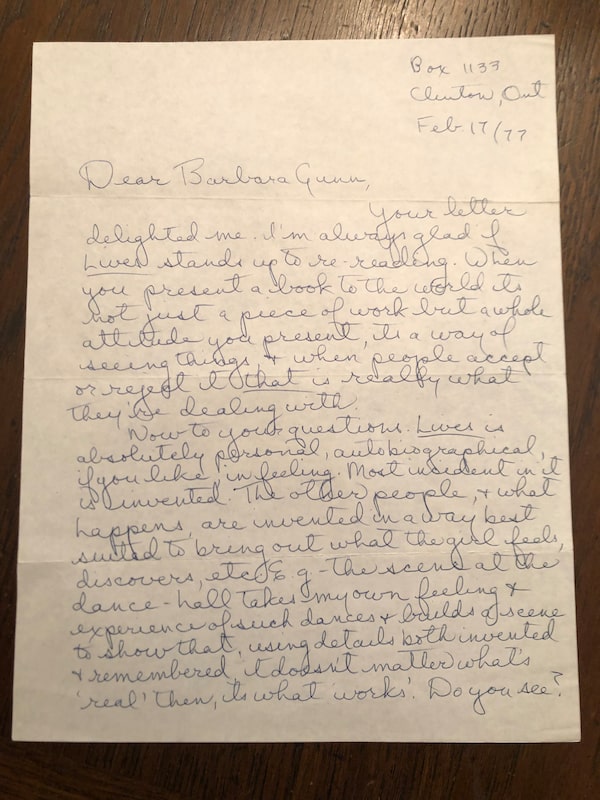 Box 1133
Clinton, Ont
Feb. 17/77
Dear Barbara Gunn,
Your letter
delighted me. I'm always glad if
Lives stands up to re-reading. When
you present a book to the world its
not just a piece of work but a whole
attitude you present, its a way of
seeing things, & when people accept
or reject it that is really what
they're dealing with.
Now to your questions. Lives is
absolutely personal, autobiographical,
if you like, in feeling. Most incident in it
is invented. The other people, & what
happens, are invented in a way best
suited to bring out what the girl feels,
discovers, etc. E.g. - the scene at the
dance-hall takes my own feeling &
experience of such dances & builds a scene
to show that, using details both invented
& remembered, it doesn't matter what's
'real' then, its what works'. Do you see?